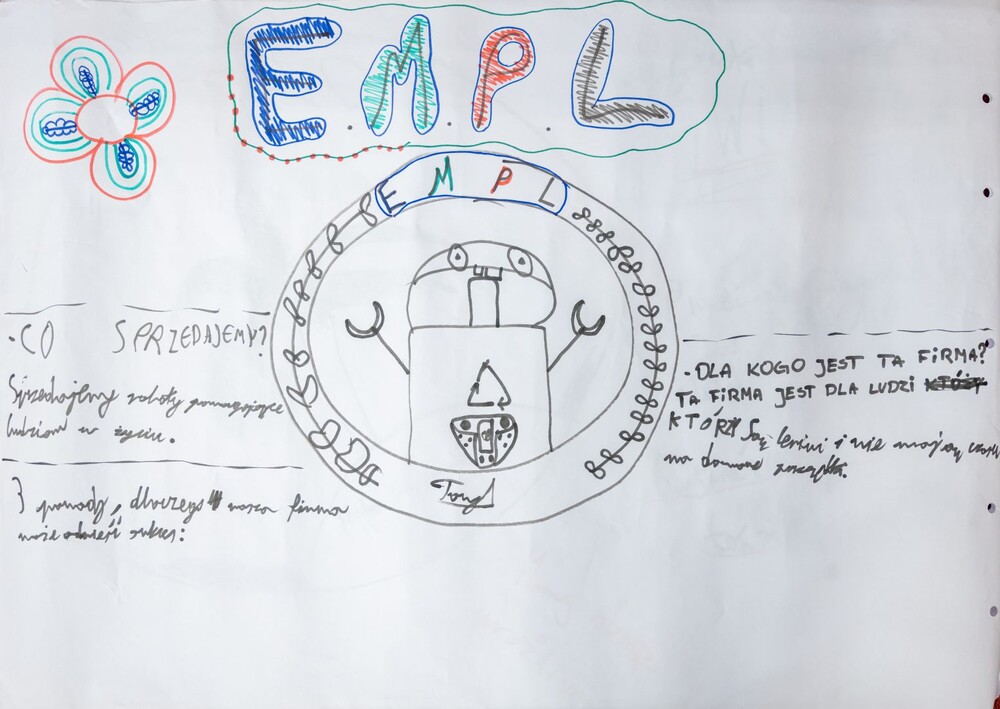 E.M.P.L
E M P L
·CO SPRZEDAJEMY?
Sprzedajemy roboty pomagające
ludziom w życiu.
3 powody, dlaczego nasza firma
może odnieść sukces:
·DLA KOGO JEST TA FiRMA?
TA FiRMA JEST DLA LUDZI
KTÓRZY są leniwi i nie mają czasu
na domowe